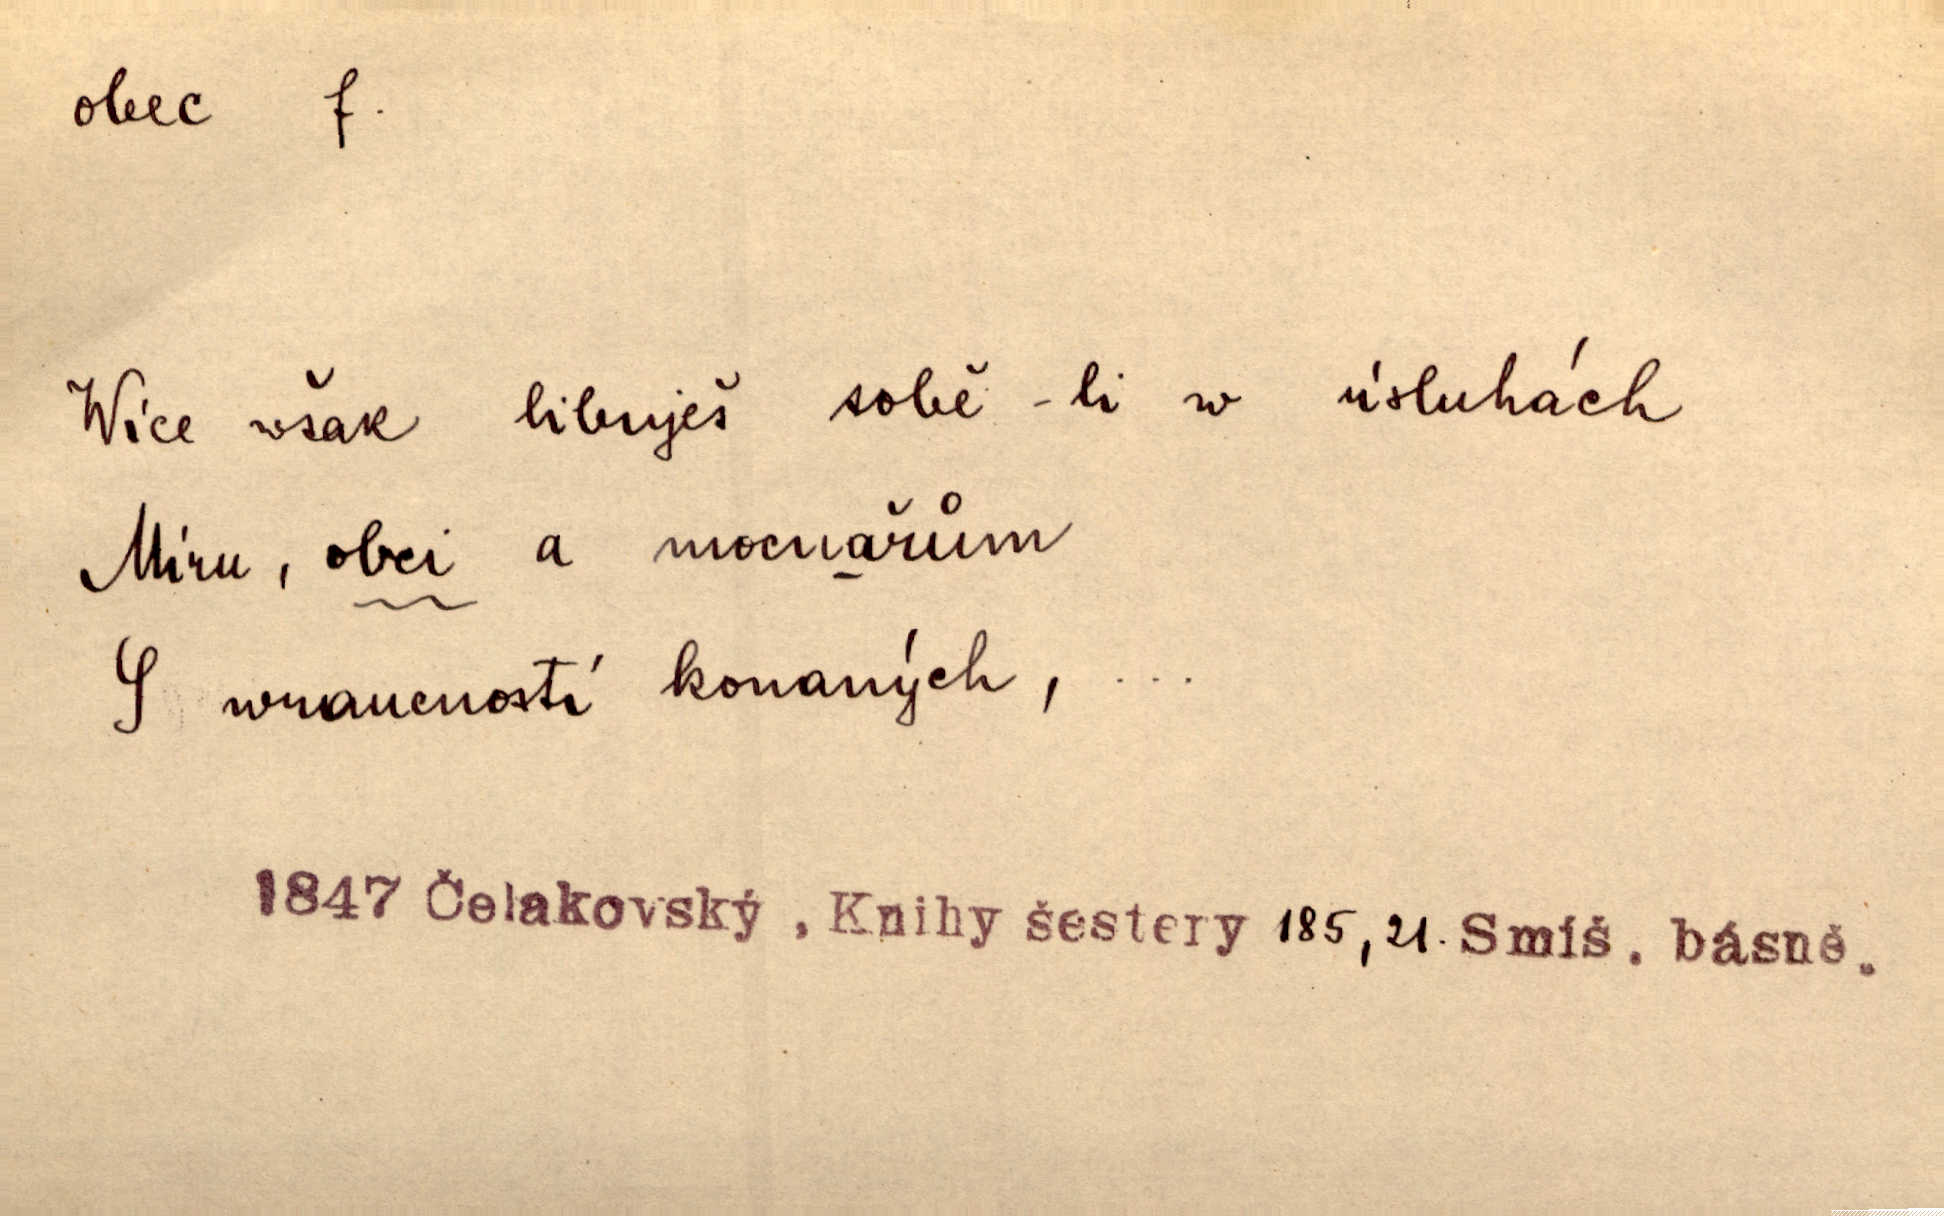 obec f.
Wíce wšak libuješ sobě-li w úsluhách
Míru, obci a mocnařům
S wraucností konaných, ...
1847 Čelakovský, Knihy šestery 185, 21. Smíš. básně.